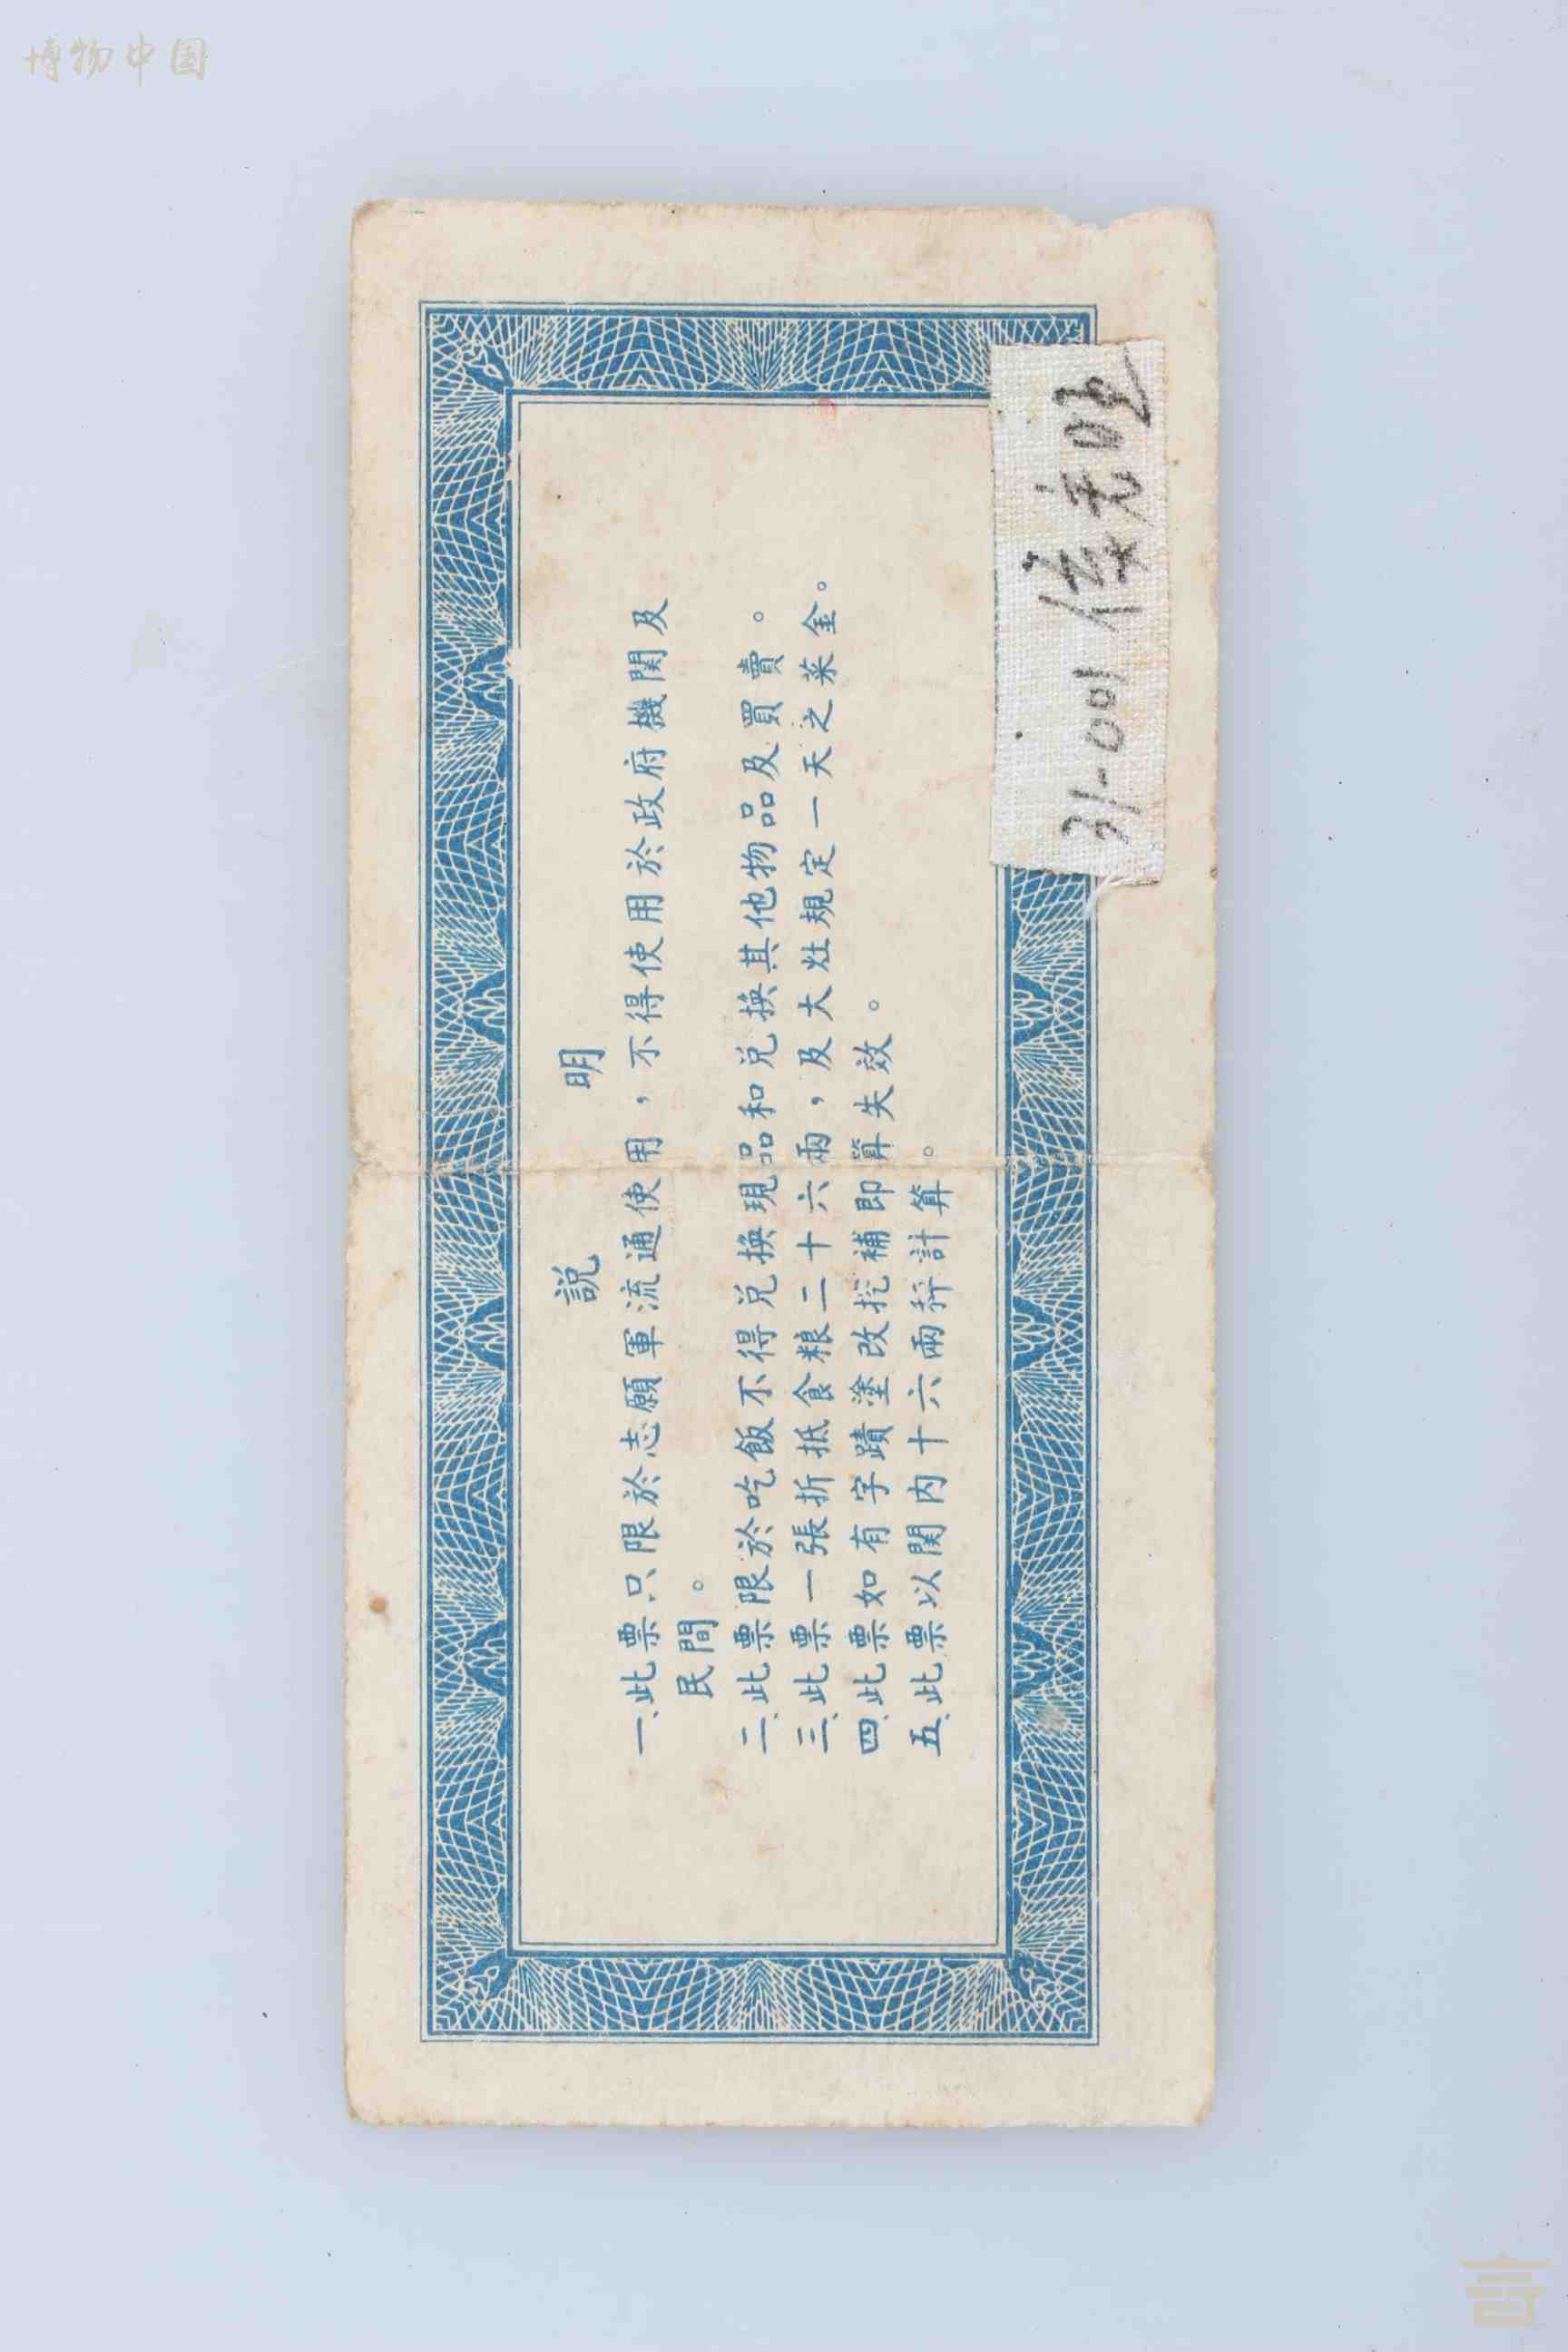 博物中国
說明
一、此票只限於志願軍流通使用，不得使用於政府機関及
民間。
二、此票限於吃飯不得兑換現品和兑換其他物品及買賣。
三、此票一張折抵食粮二十六兩，及大灶規定一天之菜金。
四、此票如有字蹟塗改挖補即算失效。
五、此票以関内十六兩秤計算。
31-001